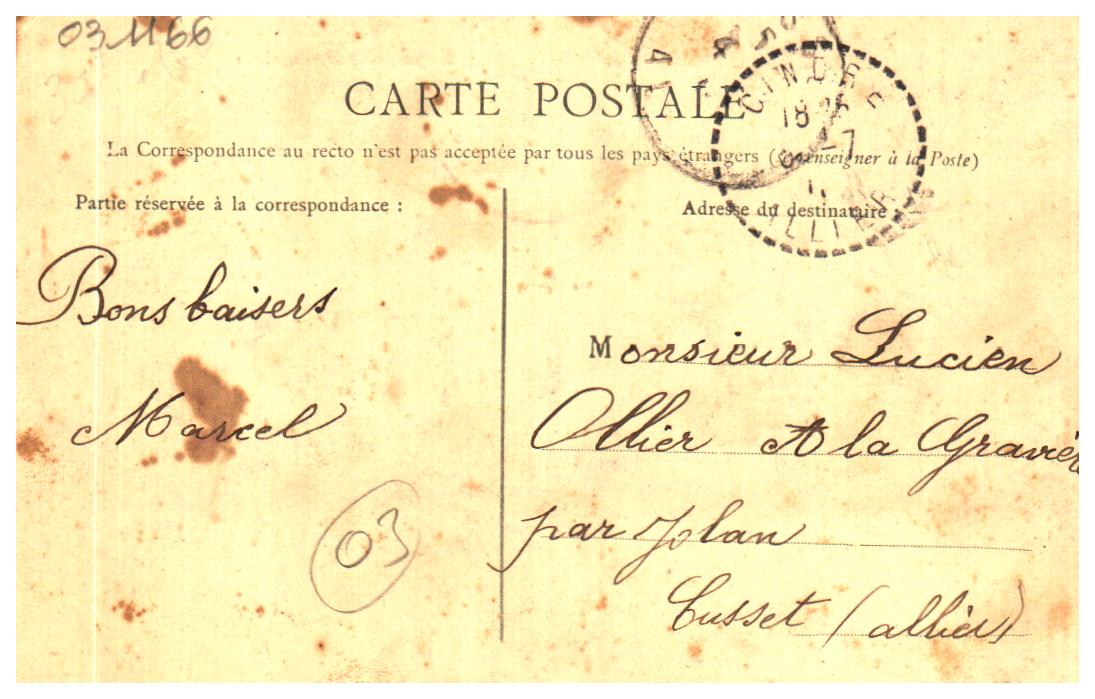 03 1166
CARTE POSTALE
La Correspondance au recto n'est pas acceptée par tous les pays étrangers (Se renseigner à la Poste)
CINDRE
18
-7
ALLIER
Partie réservée à la correspondance :
Adresse du destinataire
Bons baisers
Marcel
03
Monsieur Lucien
Ollier A la Graviè
par Jolan
Cusset (allier)